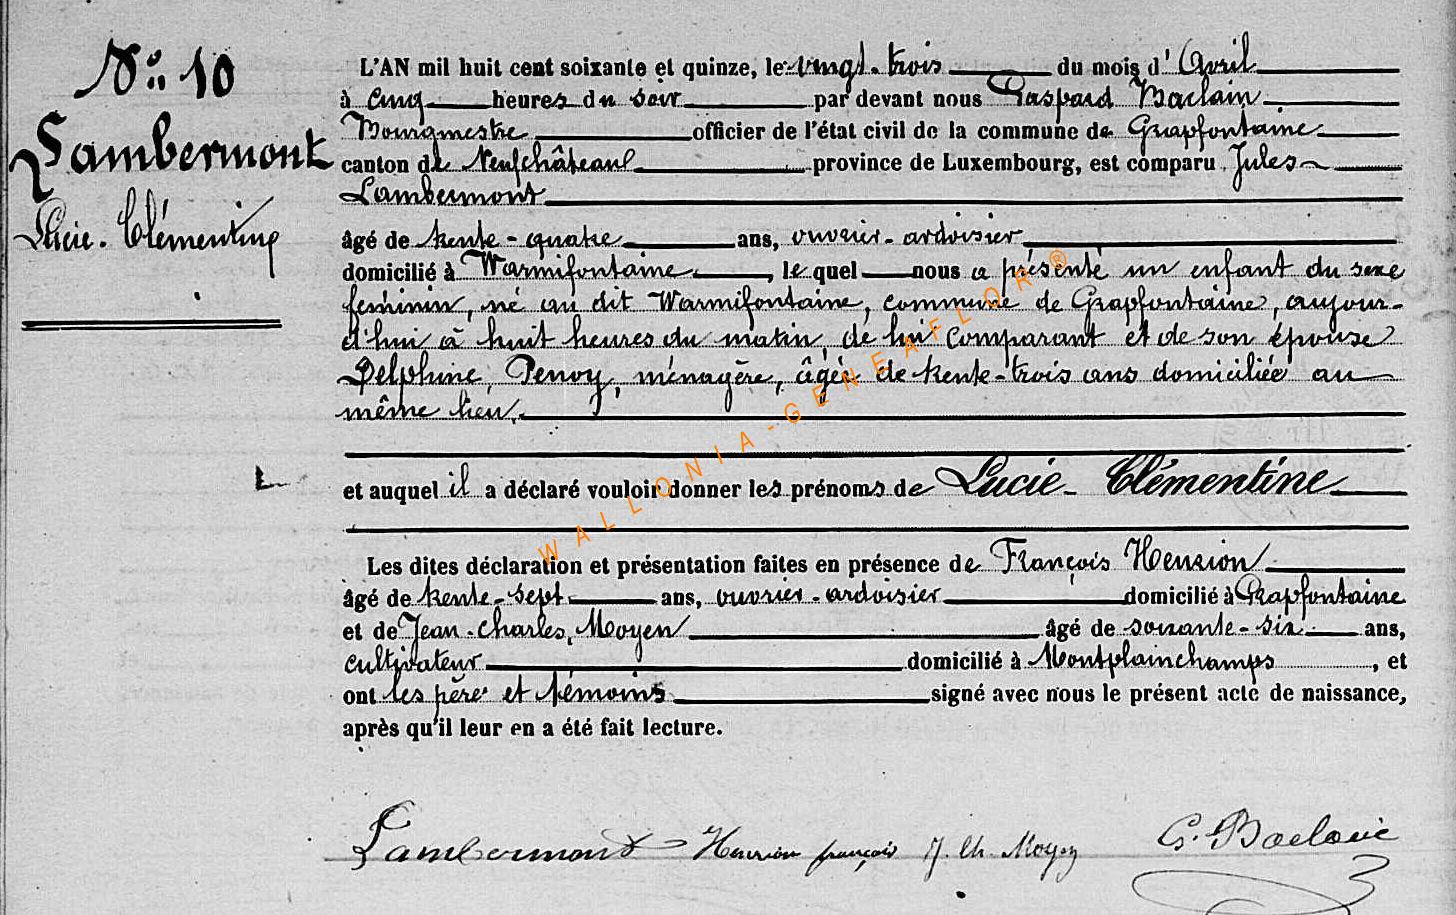 N° 10
Lambermont
Lucie-Clémentine
L'AN mil huit cent soixante et quinze, le vingt-trois du mois d'Avril
à cinq heures du soir par devant nous Gaspard Baclain
Bourgmestre officier de l'état civil de la commune de Grapfontaine
canton de Neufchâteau province de Luxembourg, est comparu Jules
Lambermont
âgé de trente-quatre ans, ouvrier-ardoisier
domicilié à Warmifontaine, le quel nous a présenté un enfant du sexe
féminin, né au dit Warmifontaine, commune de Grapfontaine, aujour-
d'hui à huit heures du matin, de lui comparant et de son épouse
Delphine, Penoy, ménagère, âgée de trente-trois ans domiciliée au
même lieu.
et auquel il a déclaré vouloir donner les prénoms de Lucie-Clémentine
Les dites déclaration et présentation faites en présence de François Henrion
âgé de trente-sept ans, ouvrier-ardoisier domicilié à Grapfontaine
et de Jean-Charles, Moyen âgé de soixante-six ans,
cultivateur domicilié à Montplainchamps, et
ont les père et témoins signé avec nous le présent acte de naissance,
après qu'il leur en a été fait lecture.
Lambermont Henrion françois J. Ch. Moyen G. Baclain
WALLONIA-GENEAFLOR®